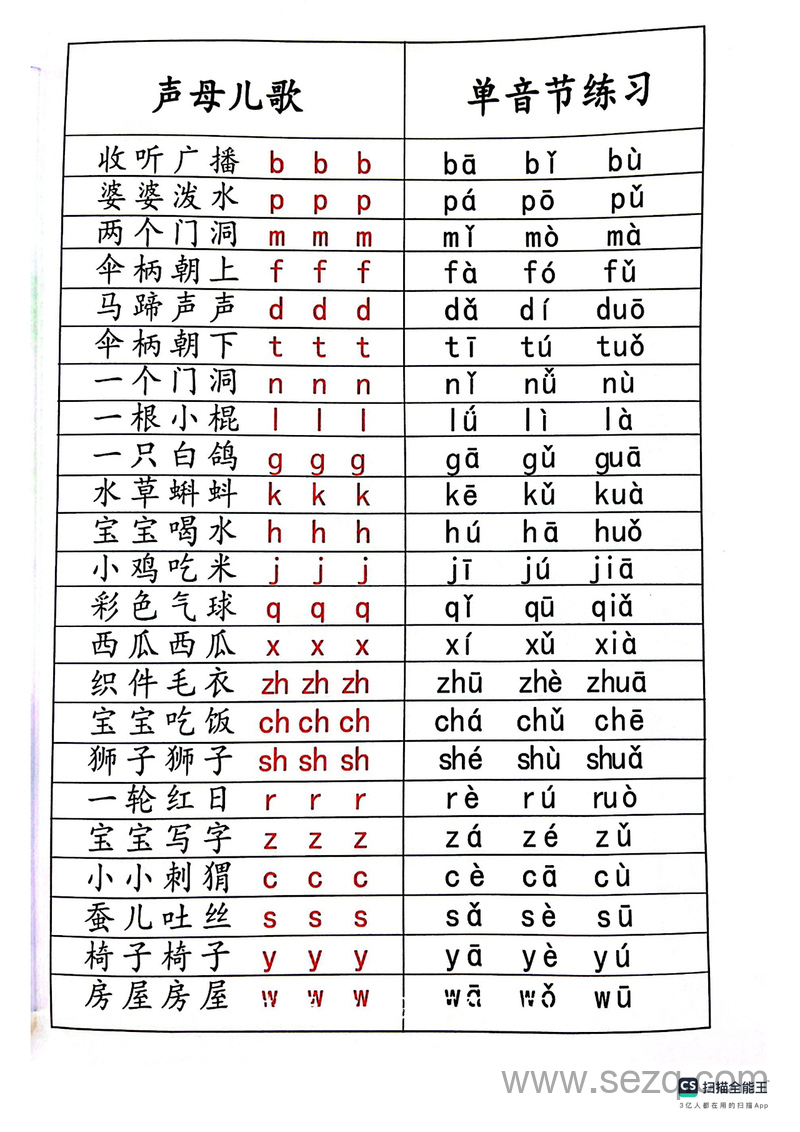 声母儿歌 单音节练习
收听广播 b b b bā bǐ bù
婆婆泼水 p p p pá pō pǔ
两个门洞 m m m mǐ mò mà
伞柄朝上 f f f fà fó fǔ
马蹄声声 d d d dǎ dí duō
伞柄朝下 t t t tī tú tuǒ
一个门洞 n n n nǐ nǚ nù
一根小棍 l l l lǘ lì là
一只白鸽 g g g gā gǔ guā
水草蝌蚪 k k k kē kǔ kuà
宝宝喝水 h h h hú hā huǒ
小鸡吃米 j j j jī jú jiā
彩色气球 q q q qǐ qū qiǎ
西瓜西瓜 x x x xí xǔ xià
织件毛衣 zh zh zh zhū zhè zhuā
宝宝吃饭 ch ch ch chá chǔ chē
狮子狮子 sh sh sh shé shù shuǎ
一轮红日 r r r rè rú ruò
宝宝写字 z z z zá zé zǔ
小小刺猬 c c c cè cā cù
蚕儿吐丝 s s s sǎ sè sū
椅子椅子 y y y yā yè yú
房屋房屋 w w w wā wǒ wū
www.sezq.com
CS 扫描全能王
3亿人都在用的扫描App